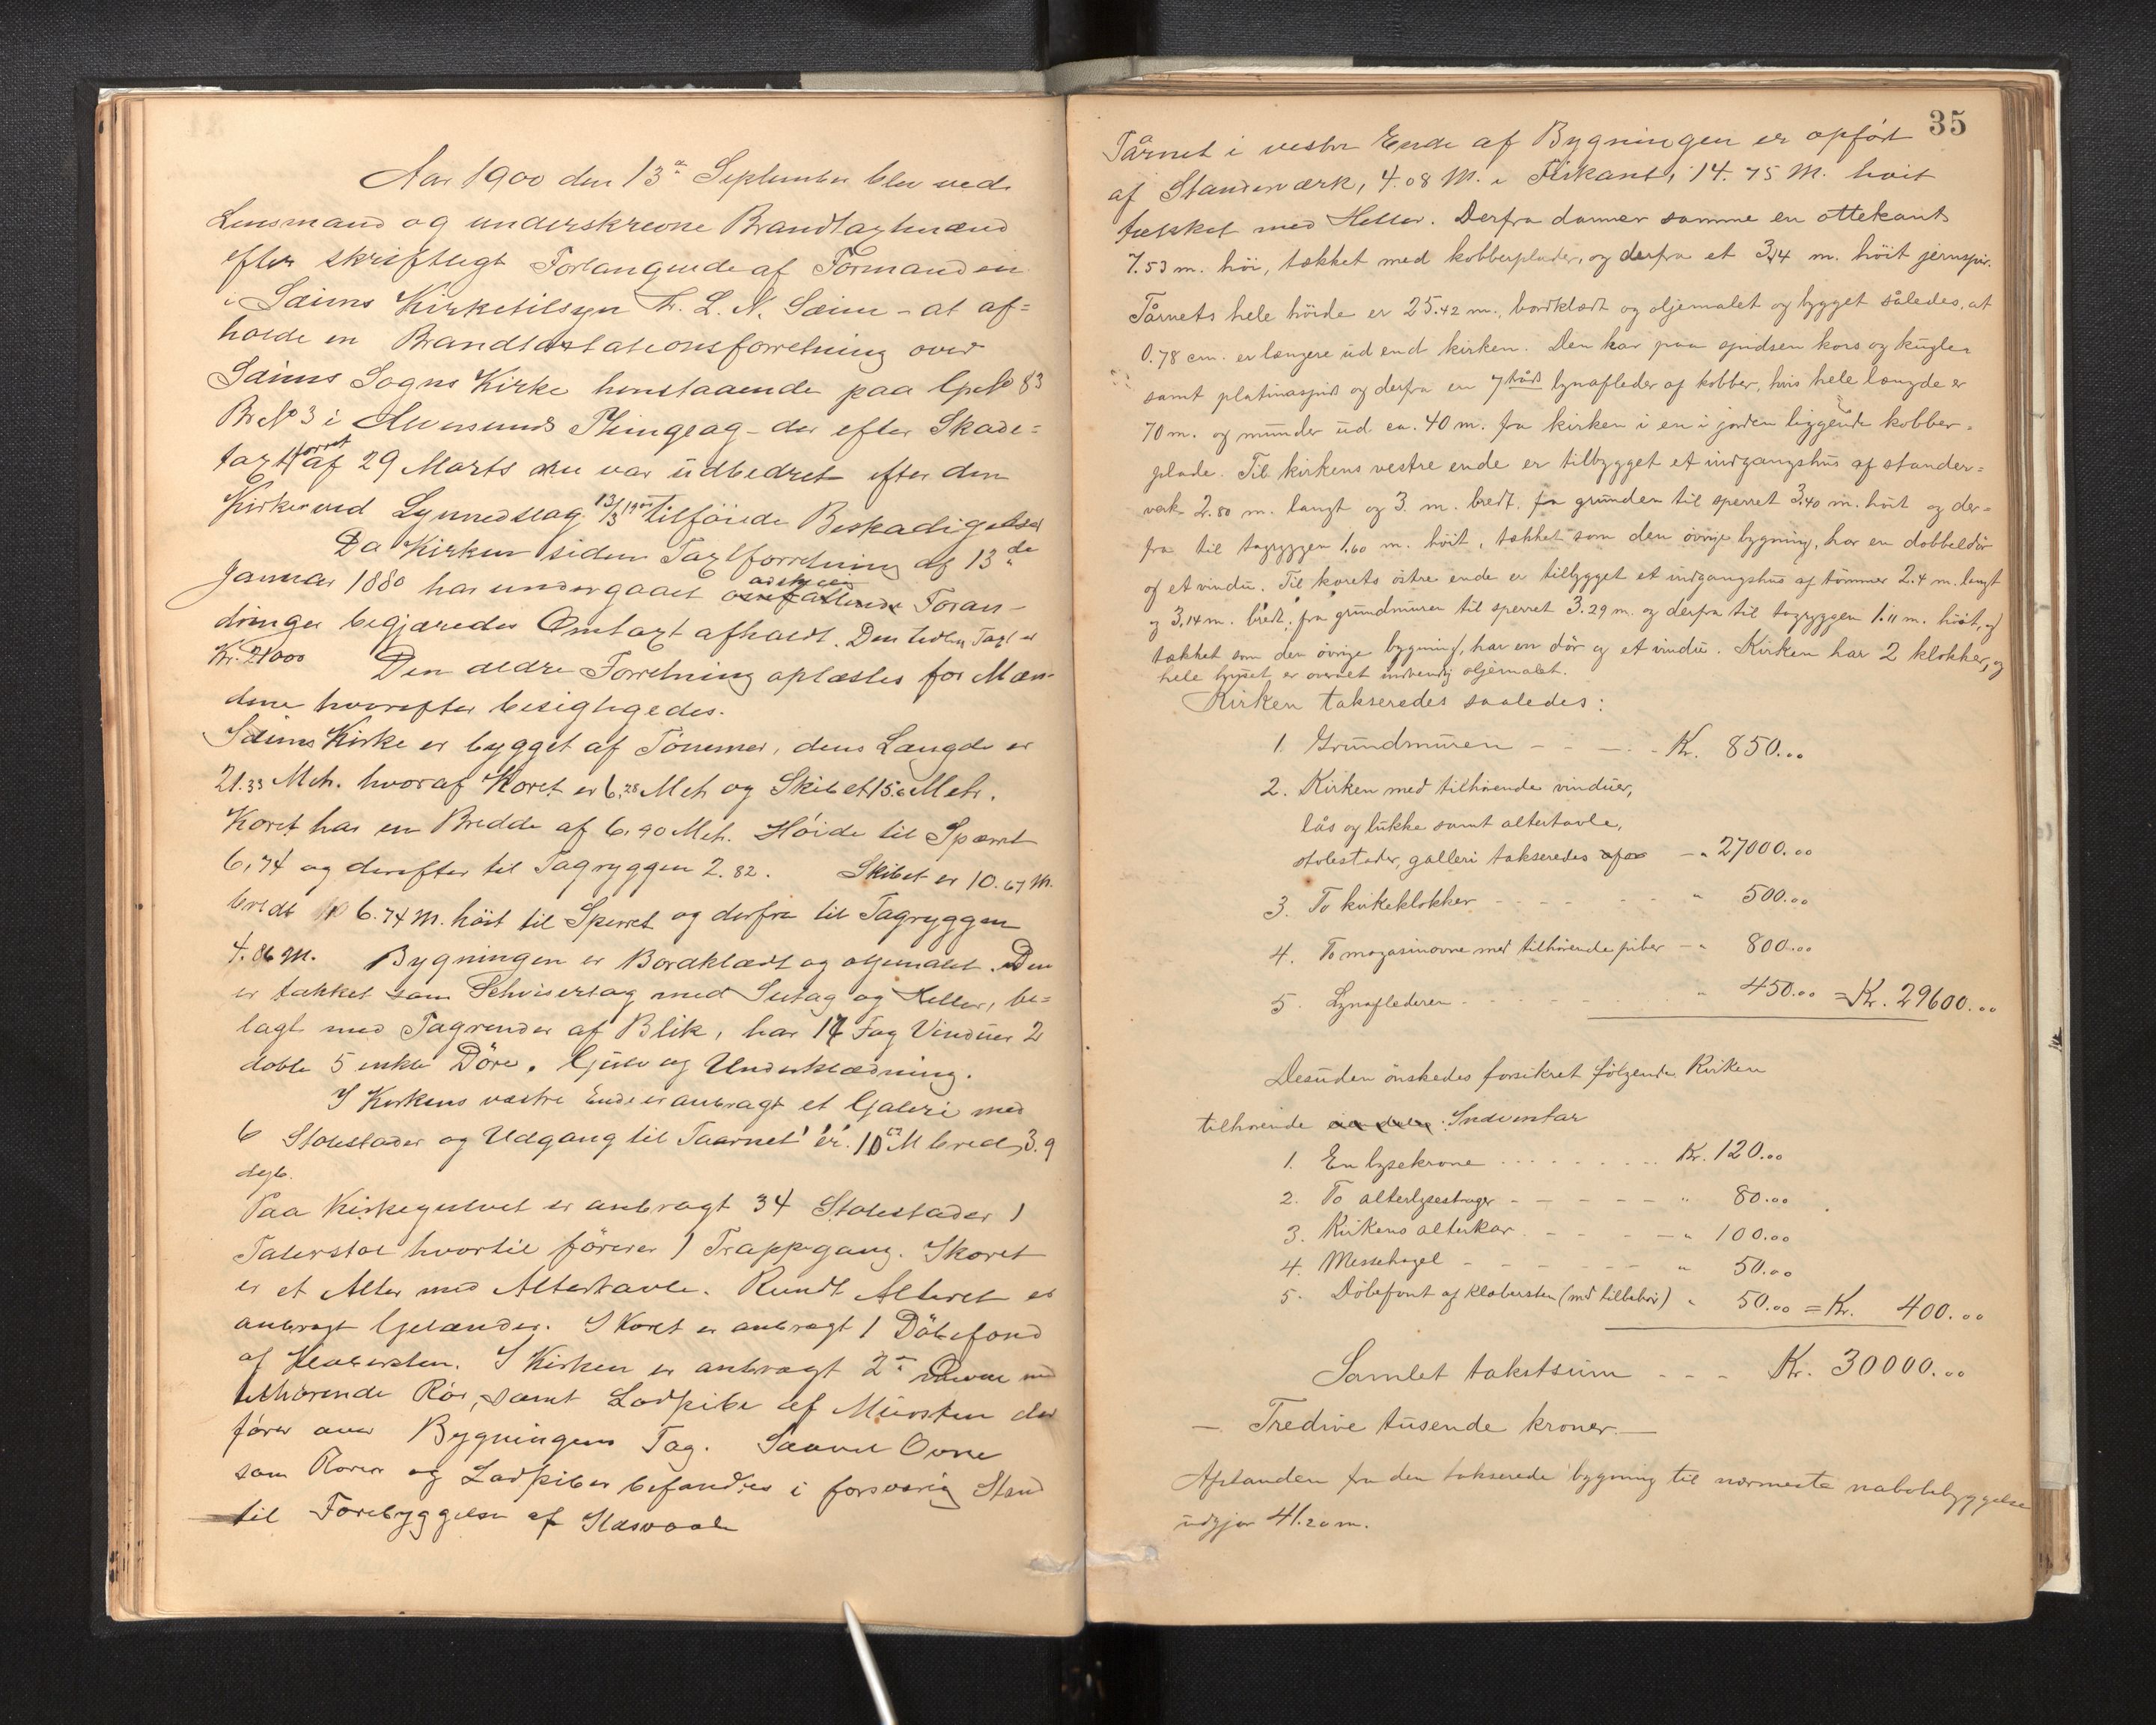 Aar 1900 den 13de September blev ved
Lensmand og underskrevne Brandtaxtmænd
efter skriftligt Forlangende af Formanden
i Sæims Kirketilsyn Hr. L. N. Sæim - at af=
holde en Brandtaxtationsforretning over
Sæims Sogns Kirke henstaaende paa Gr No 83
Br No 3 i Thingelag - der efter Skade=
taxtforret af 29 Marts nu var udbedret efter den
Kirken ved Lynnedslag 13/3 1900 tilföiede Beskadigelser
Da Kirken siden Taxtforretning af 13de
Januar 1880 har undergaaet adskillige Foran-
dringer begjæredes Omtaxt afholdt. Den Taxt er
Kr. 21000 Den ældre Forretning oplæstes for Mæn-
dene hvorefter besigtigedes.
Sæims Kirke er bygget af Tömmer, dens Længde er
21.33 Metr. hvoraf Koret er 6.28 Metr og Skibet 15.0 Metr.
Koret har en Bredde af 6.90 Metr. Höide til Spærret
6,74 og derefter til Tagryggen 2.82. Skibet er 10.67 M.
bredt 6.74 M. höit til Sperret og derfra til Tagryggen
4.86 M. Bygningen er Bordklædt og oljemalet. Den
er tækket som Schweisertag med Sutag og Heller, be=
lagt med Tagrender af Blik, har 14 Fag Vinduer 2
doble 5 enkle Döre. Gulv og Underklædning.
I Kirkens vestre Ende er anbragt et Galeri med
6 Stolestader og Udgang til Taarnet er 10 M bred, 3.9
dyb.
Paa Kirkegulvet er anbragt 34 Stolestader 1
Talerstol hvortil förerer 1 Trappegang. I Koret
er et Alter med Altertavle. Rundt Alteret er
anbragt Gelænder. I Koret er anbragt 1 Döbefond
af Klebersten. I Kirken er anbragt 2de Ovne med
tilhörende Rör, samt Ladpibe af Mursten der
förer over Bygningens Tag. Saavel Ovne
som Rörer og Ladpiber befandtes i forsvarlig Stand
til Forebyggelse af Ildsvaade
35
Tårnet i vestre Ende af Bygningen er opfört
af Standerværk, 4.08 M. i Firkant, 14.75 M. höit
tækket med Heller. Derfra danner samme en ottekant
7.53 m. höi, tækket med kobberplader, og derfra et 3.14 m. höit jernspir.
Tårnets hele höide er 25.42 m., bordklædt og oljemalet og bygget således, at
0.78 cm. er længere ud end kirken. Den har paa spidsen kors og kugler
samt platinaspids og derfra en 7 tråds lynafleder af kobber, hvis hele længde er
70 m. og munder ud ca. 40 m. fra kirken i en i jorden liggende kobber=
plade. Til kirkens vestre ende er tilbygget et indgangshus af stander=
verk 2.80 m. langt og 3. m. bredt. fra grunden til sperret 3.40 m. höit og der=
fra til tagryggen 1.60 m. höit, tækket som den övrige bygning, har en dobbeldör
og et vindu. Til korets östre ende er tilbygget et indgangshus af tömmer 2.4 m. langt
og 3.14 m. bredt, fra grundmuren til sperret 3.29 m. og derfra til tagryggen 1.11 m. höit, og
tækket som den övrige bygning, har en dör og et vindu. Kirken har 2 klokker, og
hele huset er overalt indvendig oljemalet.
Kirken takseredes saaledes:
1. Grundmuren - - - - Kr. 850.00
2. Kirken med tilhörende vinduer,
lås og lukke samt altertavle,
stolestader, galleri takseredes - " 27000.00
3. To kirkeklokker - - - - - " 500.00
4. To magasinovne med tilhörende piber - " 800.00
5. Lynaflederen - - - - - " 450.00 = Kr. 29600.00
Desuden önskedes forsikret fölgende Kirken
tilhörende Indventar
1. En lysekrone . . . . . . . Kr. 120.00
2. To alterlysestager - - - - - " 80.00
3. Kirkens alterkar. - - - - " 100.00
4. Messehagel - - - - - - " 50.00
5. Döbefont af klebersten (med tilbehör) " 50.00 = Kr. 400.00
Samlet takstsum - - - Kr. 30000.00
- Tredive tusende kroner. -
Afstanden fra den takserede bygning til nærmeste nabobebyggelse
udgjör 41.20 m.